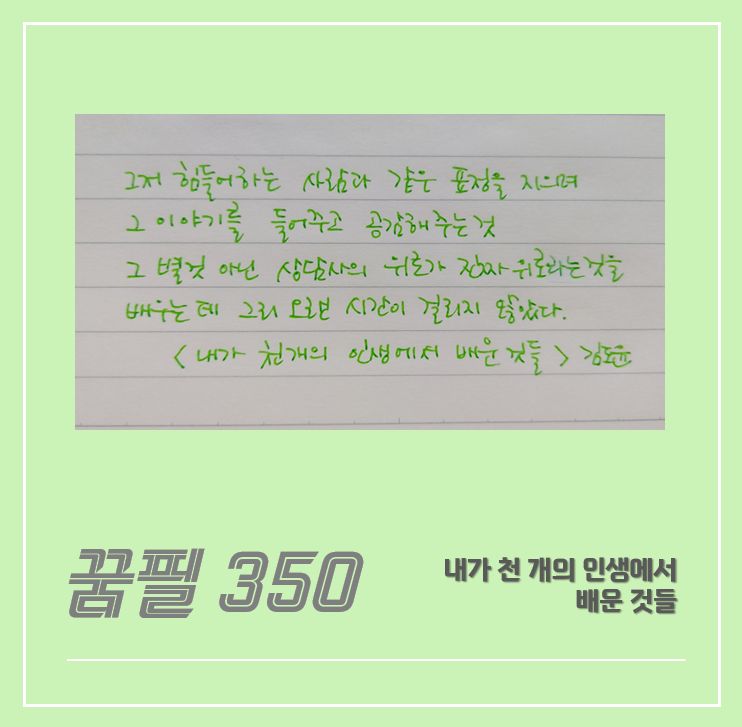 그저 힘들어하는 사람과 같은 표정을 지으며
그 이야기를 들어주고 공감해주는 것
그 별것 아닌 상담사의 위로가 진짜 위로라는 것을
배우는 데 그리 오랜 시간이 걸리지 않았다.
<내가 천개의 인생에서 배운 것들> 김도윤
꿈필 350
내가 천 개의 인생에서
배운 것들